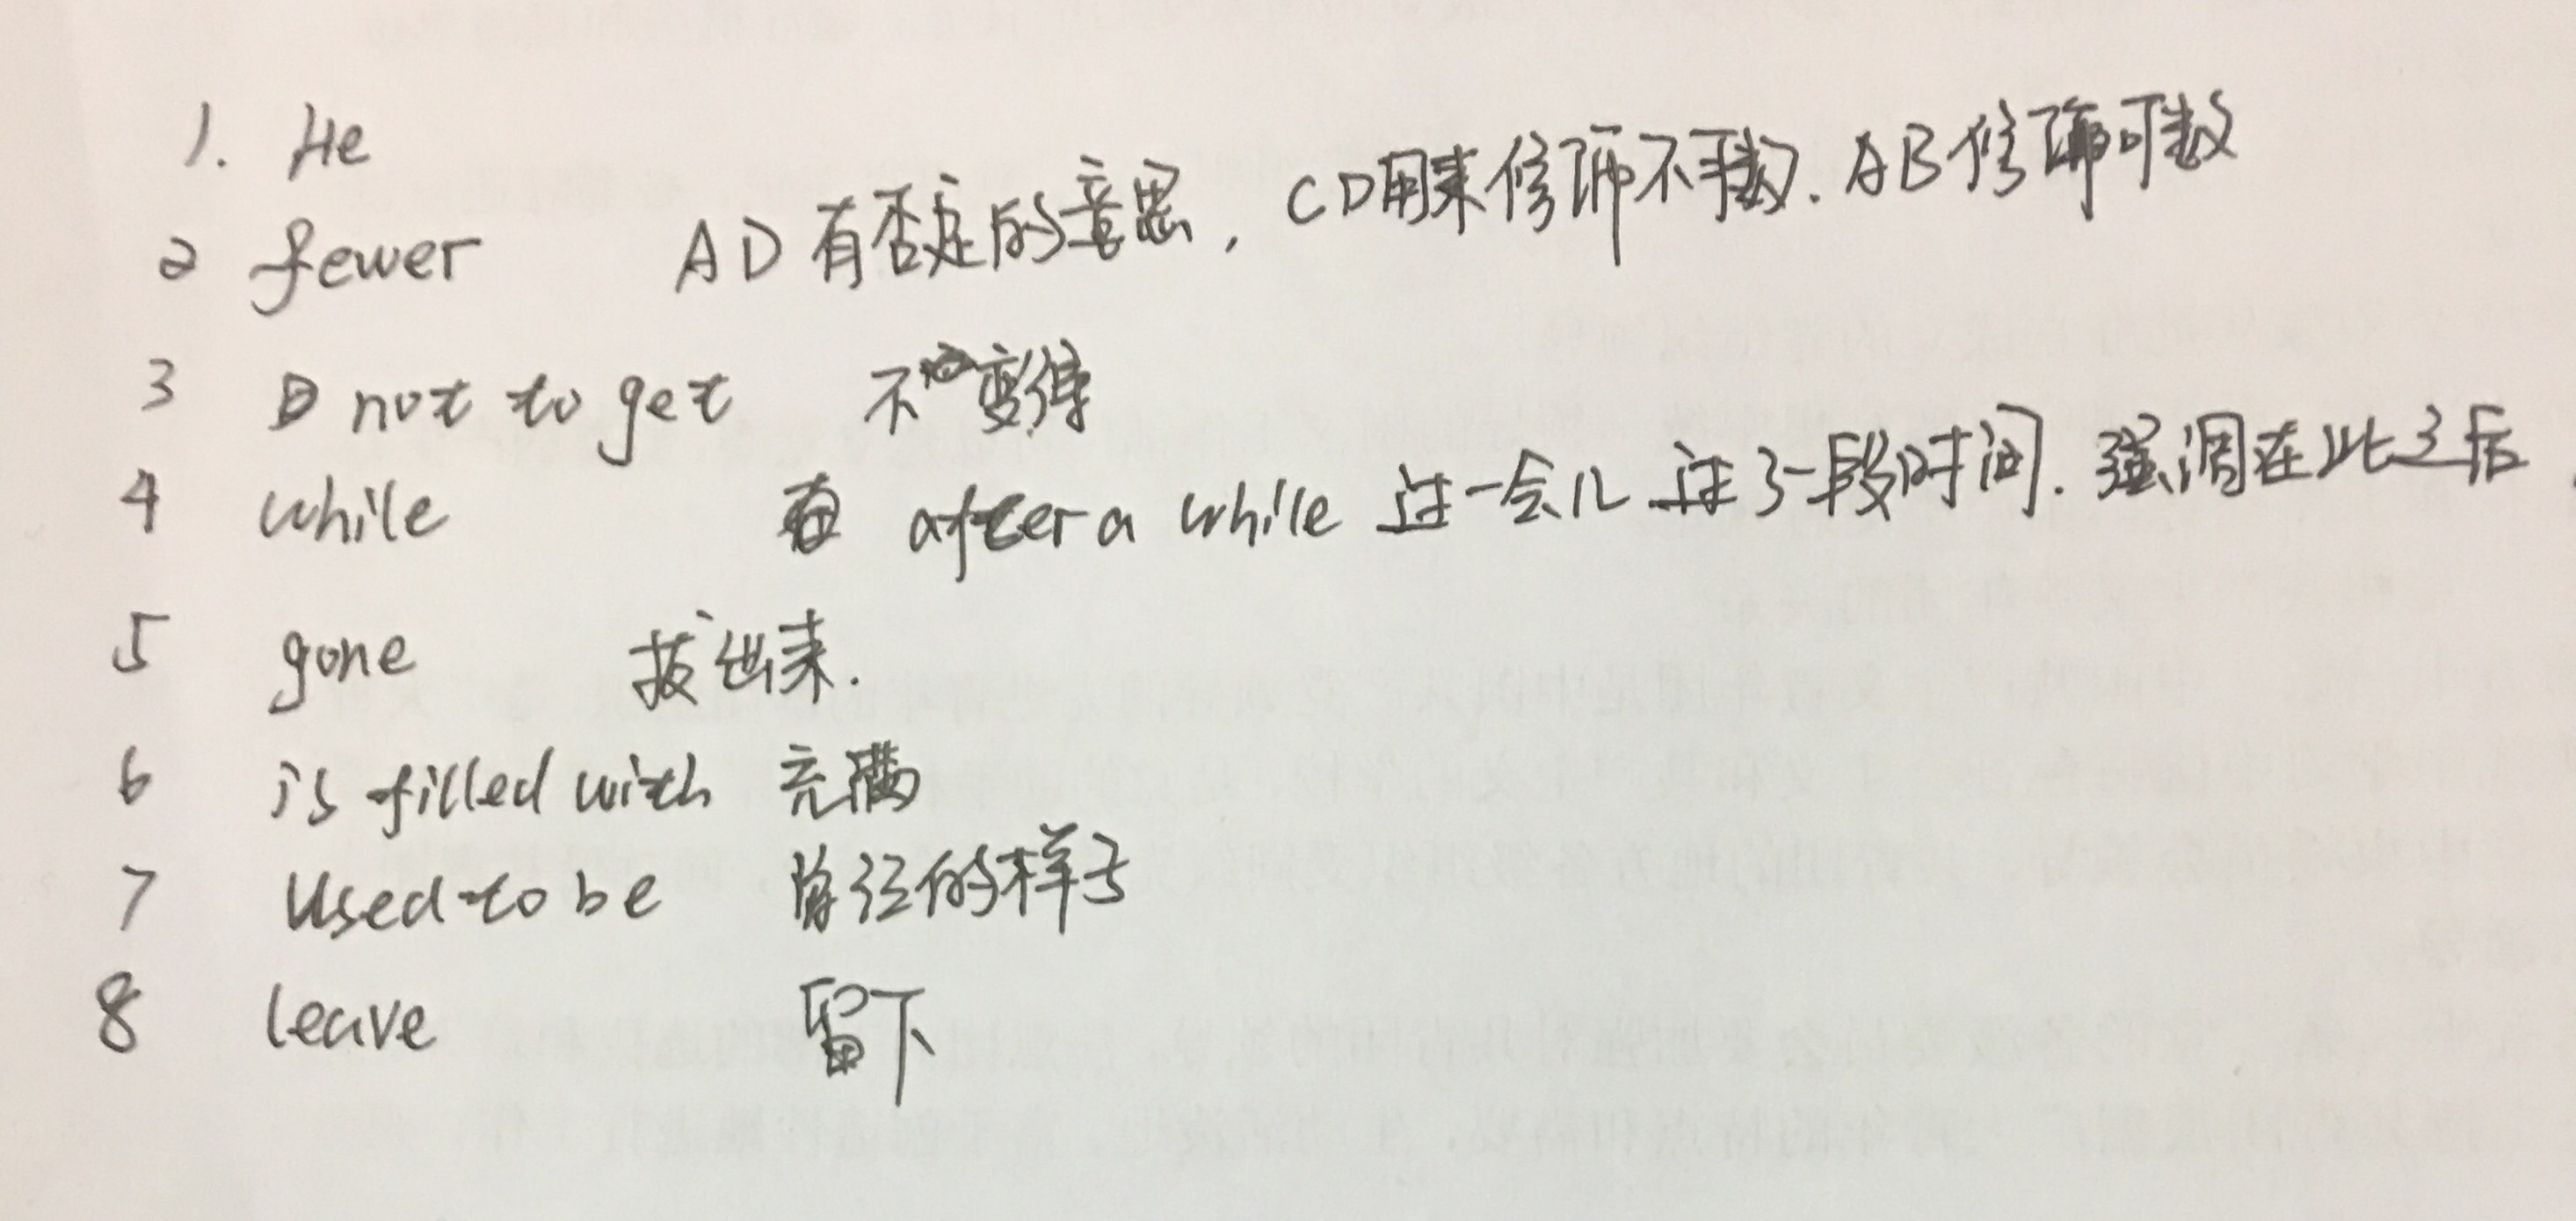 1. He
2 fewer AD有否定的意思, CD用来修饰不可数. AB修饰可数
3 D not to get 不变得
4 while after a while 过一会儿 过了一段时间. 强调在此之后
5 gone 拔出来.
6 is filled with 充满
7 Used to be 曾经的样子
8 leave 留下